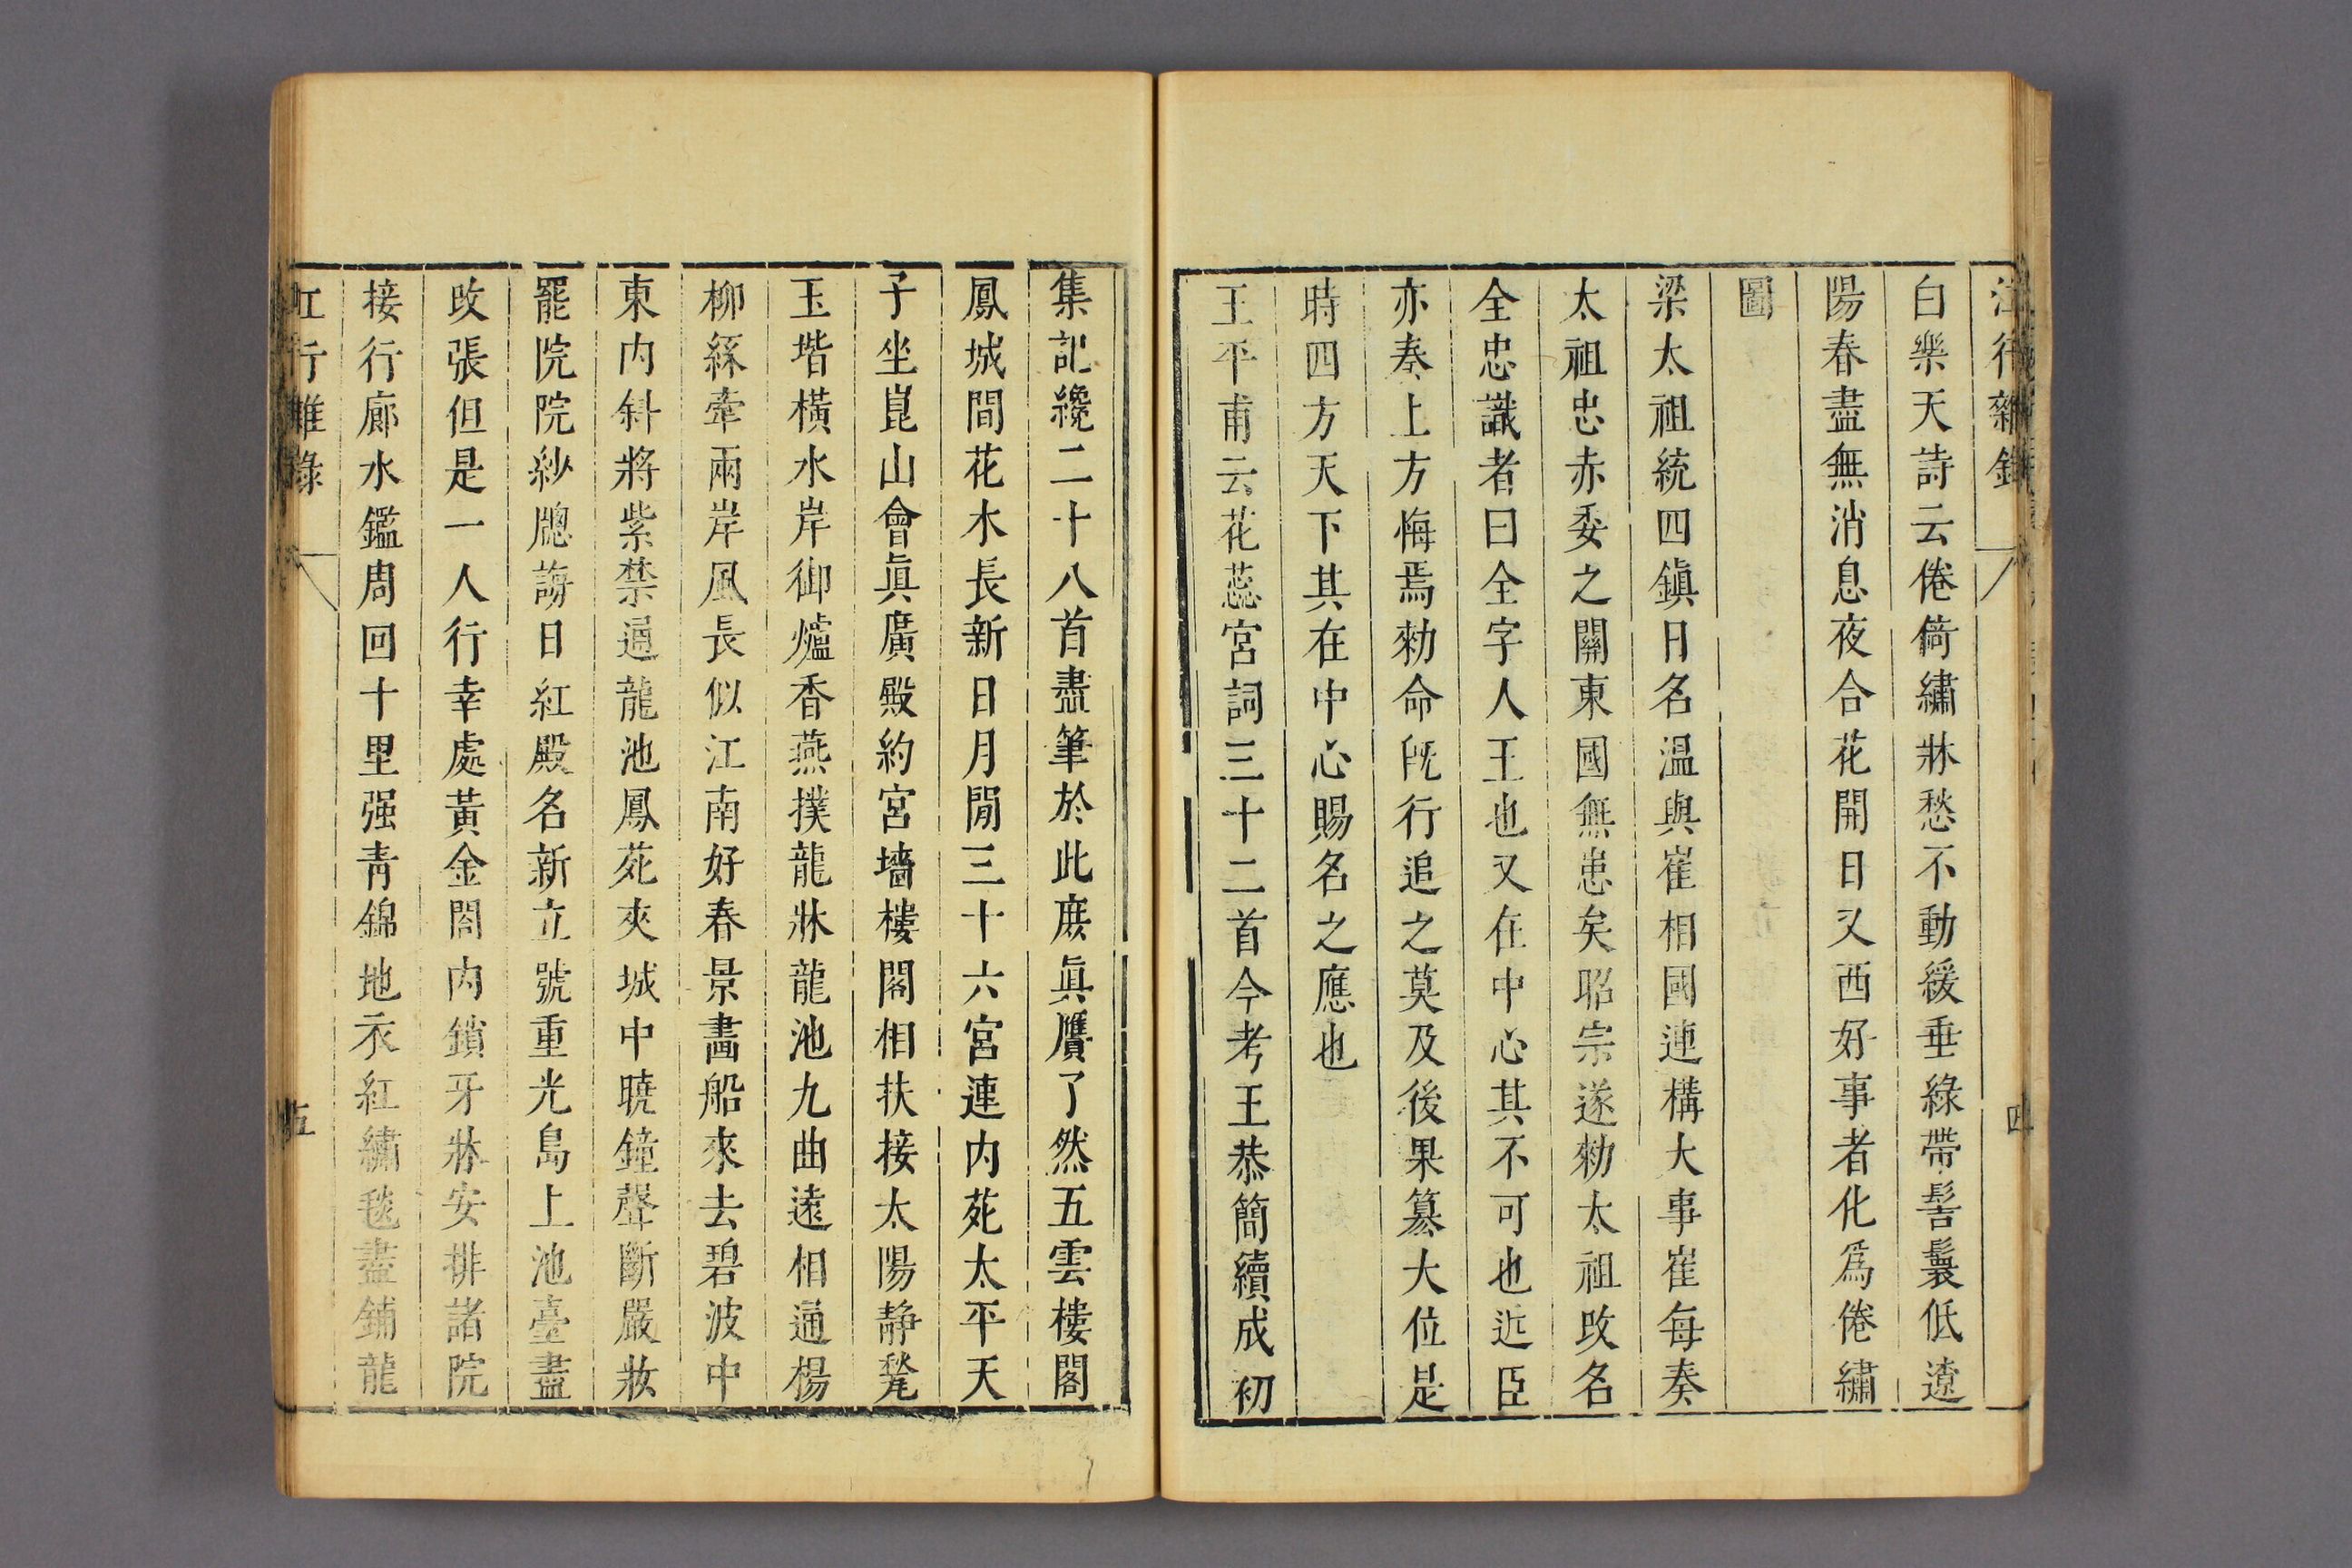 江行雜録
四
白樂天詩云倦倚繡牀愁不動緩垂綠帶髻鬟低遼
陽春盡無消息夜合花開日又西好事者化爲倦繡
圖
梁太祖統四鎭日名溫與崔相國連構大事崔每奏
太祖忠赤委之關東國無患矣昭宗遂勑太祖改名
全忠議者曰全字人王也又在中心其不可也近臣
亦奏上方悔焉勑命旣行追之莫及後果篡大位是
時四方天下其在中心賜名之應也
王平甫云花蕊宮詞三十二首今考王恭簡續成初
集記纔二十八首盡筆於此庶眞贋了然五雲樓閣
鳳城間花木長新日月閒三十六宮連內苑太平天
子坐崑山會眞廣殿約宮墻樓閣相扶接太陽靜甃
玉堦橫水岸御爐香燕撲龍牀龍池九曲遠相通楊
柳絲牽兩岸風長似江南好春景畫船來去碧波中
東內斜將紫禁通龍池鳳苑夾城中曉鐘聲斷嚴妝
罷院院紗牕謗日紅殿名新立號重光島上池臺盡
改張但是一人行幸處黃金閣內鎖牙牀安排諸院
接行廊水鑑周回十里强青錦地衣紅繡毯盡鋪龍
江行雜錄
五